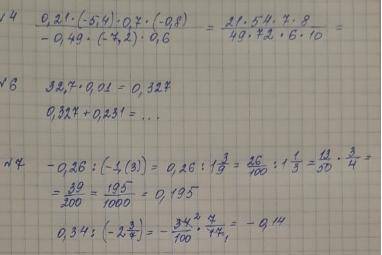 №4 (0,21·(-5,4)·0,7·(-0,8))/(-0,49·(-7,2)·0,6) = (21·54·7·8)/(49·72·6·10) =
№6 32,7·0,01 = 0,327
0,327+0,231 = ...
№7 -0,26:(-1,(3)) = 0,26:1 3/9 = 26/100 : 1 1/3 = 13/50 · 3/4 =
= 39/200 = 195/1000 = 0,195
0,34:(-2 3/7) = - 34²/100 · 7/17₁ = -0,14